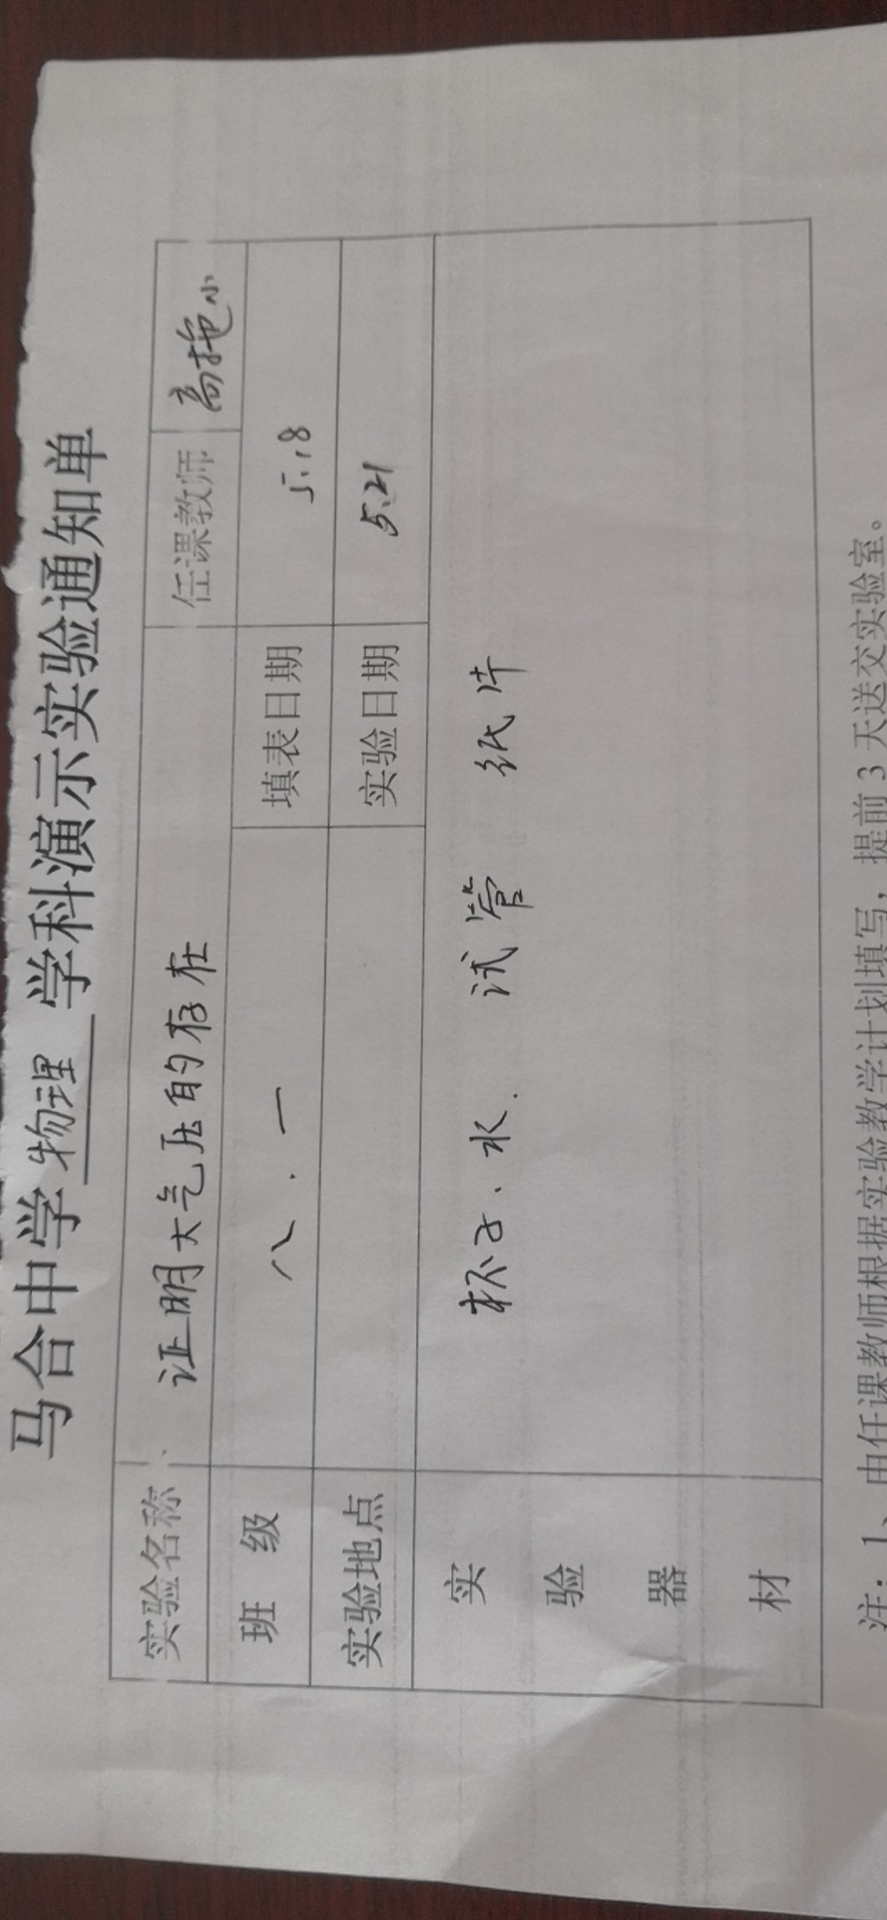 马合中学 物理 学科演示实验通知单
实验名称 证明大气压的存在 任课教师 高拖小
班 级 八.一 填表日期 5.18
实验地点 实验日期 5.21
实验器材 杯子、水. 试管 纸片
注:1、由任课教师根据实验教学计划填写，提前3天送交实验室。